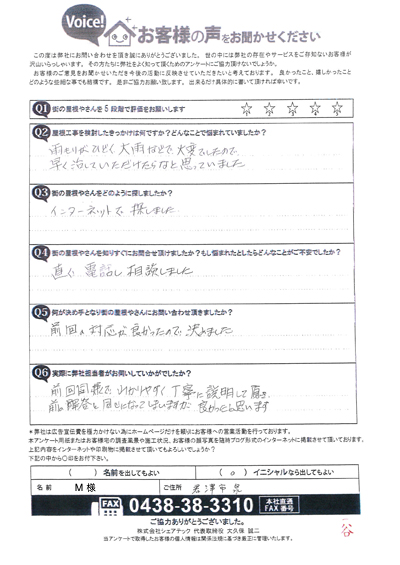 Voice!
お客様の声をお聞かせください
この度は弊社にお問い合わせを頂き誠にありがとうございました。世の中には弊社の存在やサービスをご存知ないお客様が
沢山いらっしゃいます。その方たちに弊社をよく知って頂くためのアンケートにご協力頂けないでしょうか。
お客様のご意見をお聞かせいただき今後の活動に反映させていただきたいと考えております。良かったこと、嬉しかったこと
どのような些細な事でも結構です。是非ご協力お願い致します。出来るだけ具体的に書いて頂ければ幸いです。
Q1 街の屋根やさんを5段階で評価をお願いします ☆ ☆ ☆ ☆ ☆
Q2 屋根工事を検討したきっかけは何ですか？どんなことで悩まれていましたか？
雨もりがひどく大雨などで大変でしたので
早く治していただけたらなと思っていました
Q3 街の屋根やさんをどのように探しましたか？
インターネットで探しました
Q4 街の屋根やさんを知りすぐにお問合せ頂けましたか？もし悩まれたとしたらどんなことがご不安でしたか？
直ぐ電話し相談しました
Q5 何が決め手となり街の屋根やさんにお問い合わせ頂きましたか？
前回の対応が良かったので決めました
Q6 実際に弊社担当者がお伺いしていかがでしたか？
前回同様でわかりやすく丁寧に説明して頂き
前の解答と同じになってしまいますが良かったと思います
＊弊社は広告宣伝費を極力かけない為にホームページだけを頼りにお客様への営業活動を行っております。
本アンケート用紙またはお客様宅の調査風景や施工状況、お客様の顔写真を随時ブログ形式のインターネットに掲載させて頂いております。
上記内容をインターネットや印刷物に掲載させて頂いてもよろしいでしょうか？
下記の中から〇印をお付下さい。
（　）名前を出してもよい （○）イニシャルなら出してもよい
名前 M様 ご住所 君津市泉
FAX 0438-38-3310 本社直通 FAX番号
ご協力ありがとうございました。
株式会社シェアテック 代表取締役 大久保 誠二
当アンケートで取得したお客様の個人情報は関係法規に基づき厳正に管理いたします。
谷